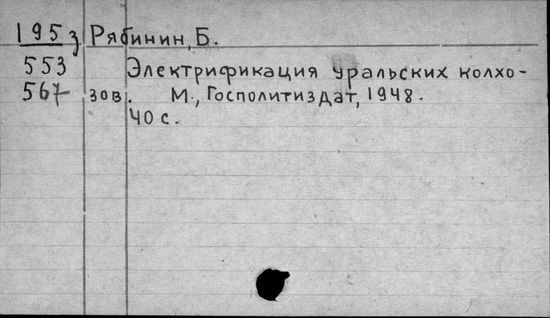 195з Рябинин, Б.
553 Электрификация уральских колхо-
567 зов. М., Госполитиздат, 1948.
40 с.